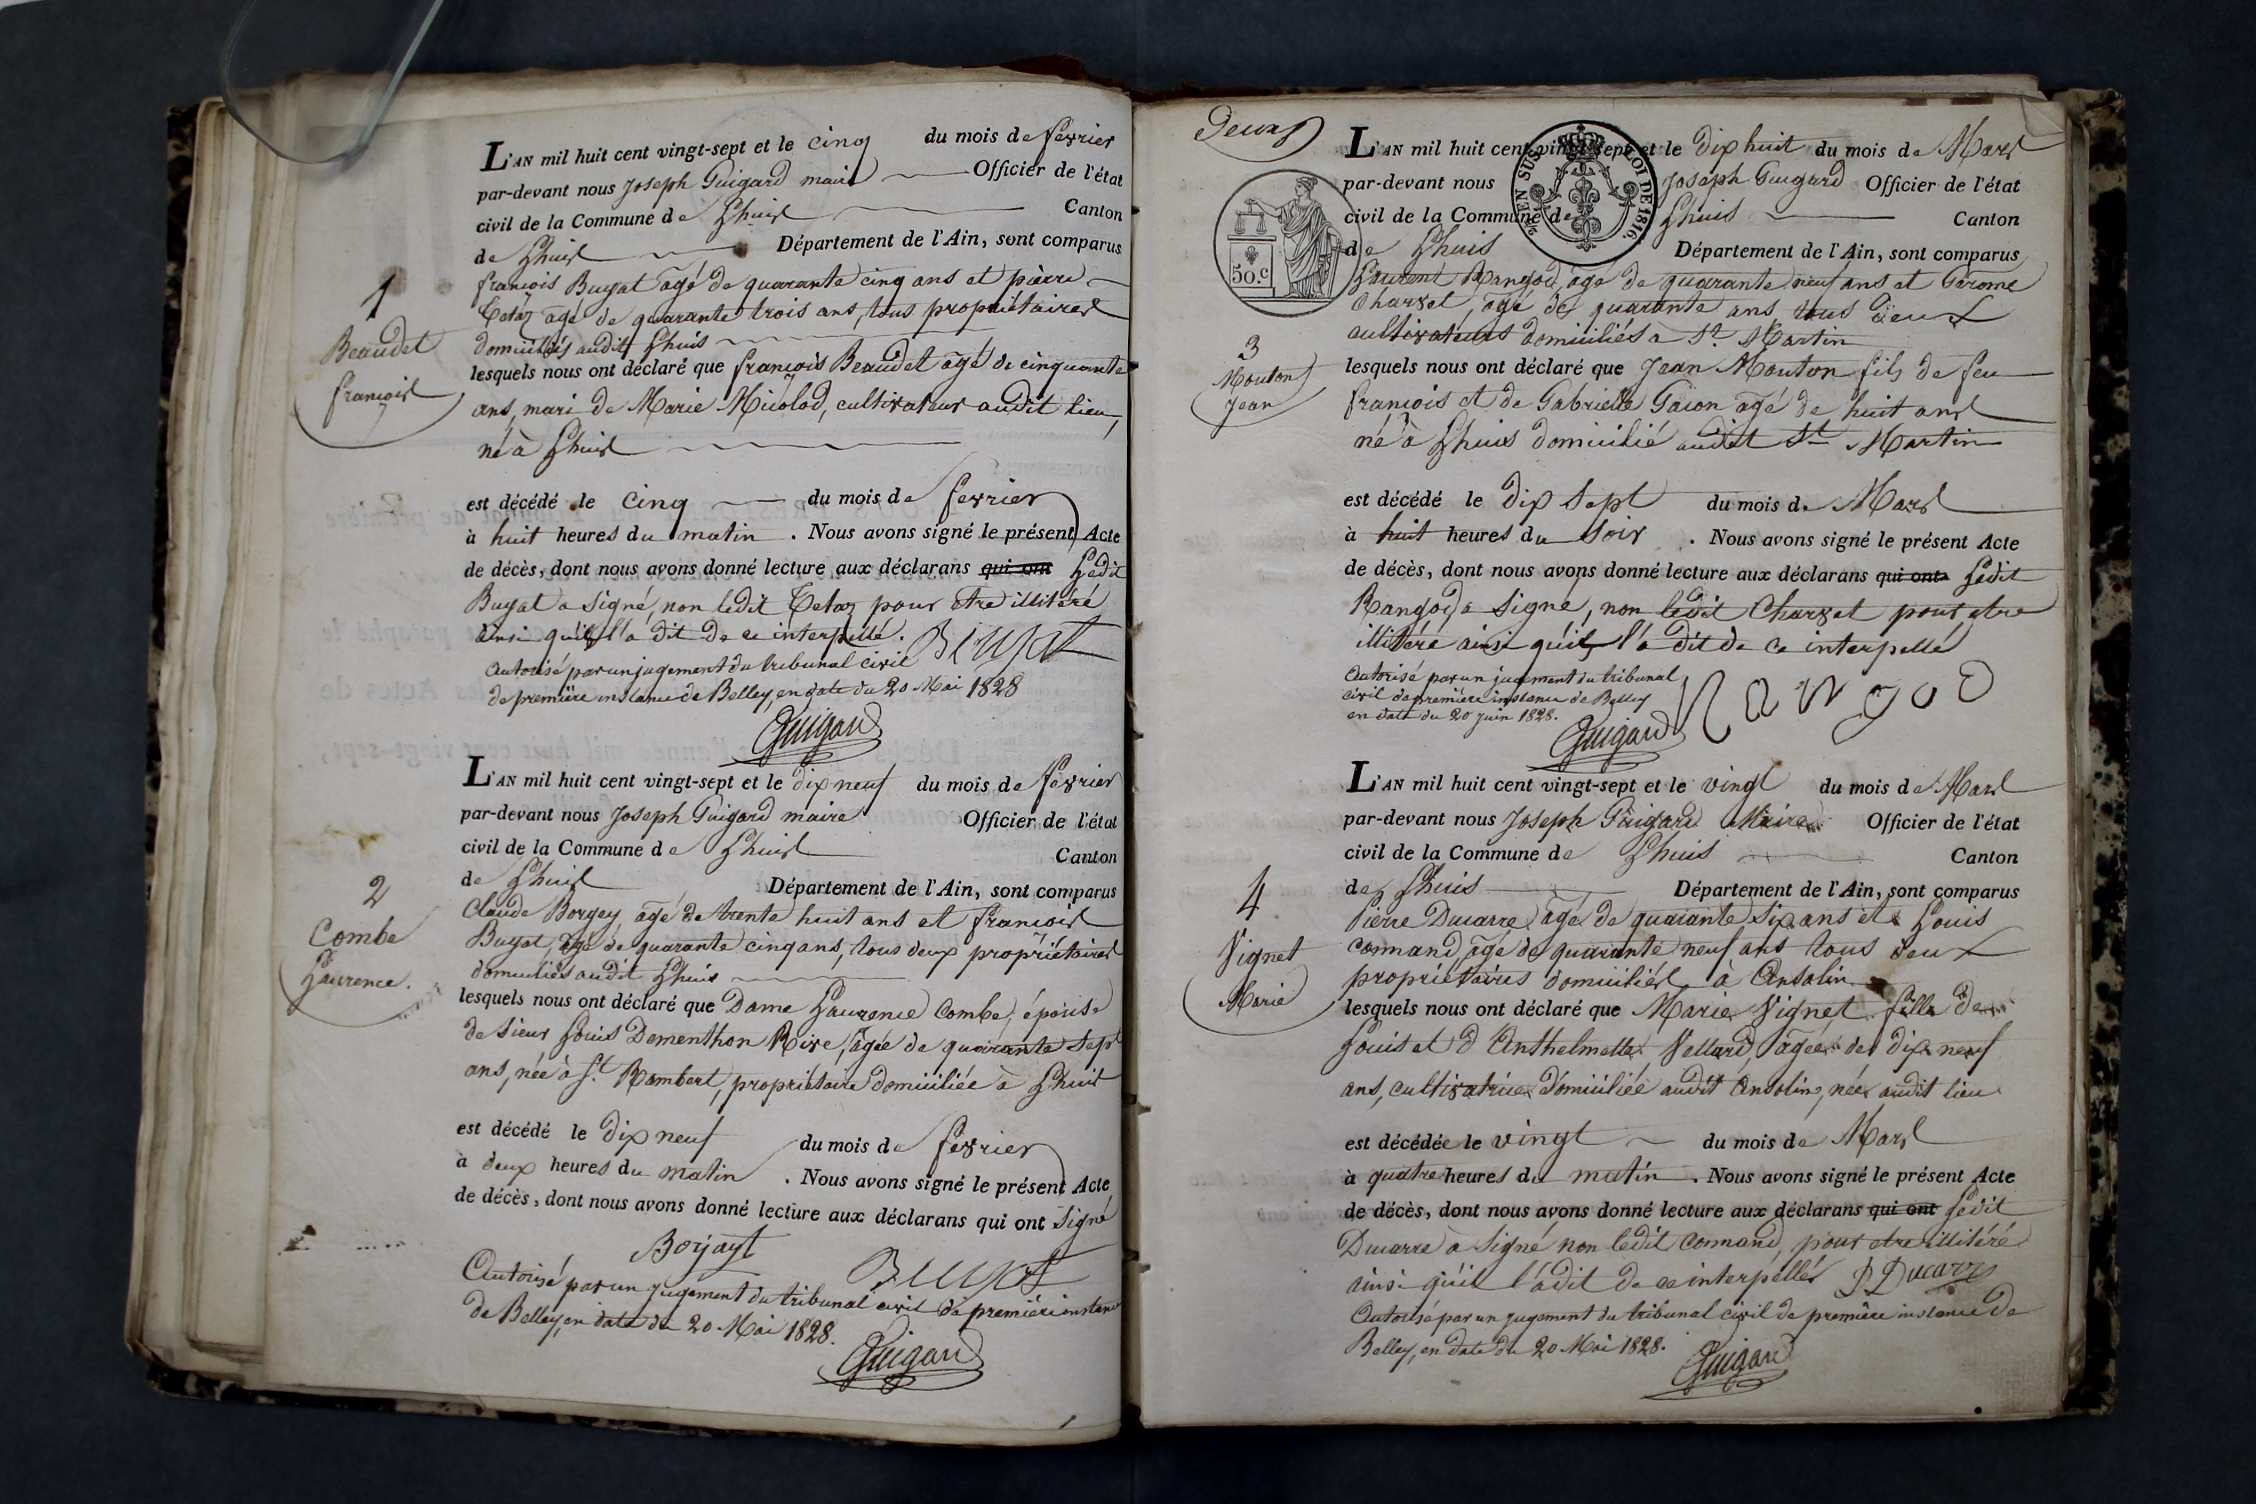 L'AN mil huit cent vingt-sept et le cinq du mois de fevrier
par-devant nous Joseph Guigard maire Officier de l'état
civil de la Commune de Lhuis Canton
de Lhuis Département de l'Ain, sont comparus
françois Buyat âgé de quarante cinq ans et pierre
Tetaz âgé de quarante trois ans, tous propriétaires
domiciliés audit Lhuis
1
Beaudet
françois
lesquels nous ont déclaré que françois Beaudet âgé de cinquante
ans, mari de Marie Micolod, cultivateur audit lieu,
né à Lhuis
est décédé le cinq du mois de fevrier
à huit heures du matin. Nous avons signé le présent Acte
de décès, dont nous avons donné lecture aux déclarans qui ont Ledit
Buyat a signé, non ledit Tetaz pour etre illitéré
ainsi qu'il l'a dit de ce interpellé. Buyat
autorisé par un jugement du tribunal civil
de première instance de Belley, en date du 20 Mai 1828
Guigard
L'AN mil huit cent vingt-sept et le dix neuf du mois de fevrier
par-devant nous Joseph Guigard maire Officier de l'état
civil de la Commune de Lhuis Canton
de Lhuis Département de l'Ain, sont comparus
Claude Borgey âgé de trente huit ans et françois
Buyat, âgé de quarante cinq ans, tous deux propriétaires
domiciliés audit Lhuis
2
Combe
Laurence.
lesquels nous ont déclaré que Dame Laurence Combe, épouse
de sieur Louis Dementhon Rive, âgée de quarante sept
ans, née à St. Rambert, propriétaire domiciliée à Lhuis
est décédé le dix neuf du mois de fevrier
à deux heures du matin. Nous avons signé le présent Acte
de décès, dont nous avons donné lecture aux déclarans qui ont signé
Buyat
Autorisé par un jugement du tribunal civil de première instance
de Belley, en date du 20 Mai 1828.
Guigard
Deux
L'AN mil huit cent vingt-sept et le dix huit du mois de Mars
par-devant nous Joseph Guigard Officier de l'état
civil de la Commune de Lhuis Canton
de Lhuis Département de l'Ain, sont comparus
EN SUS
LOI DE 1816.
50.c
Laurent Rangod, âgé de quarante neuf ans et Gérome
Charvet, âgé de quarante ans, tous deux
cultivateurs domiciliés à St. Martin
3
Mouton
Jean
lesquels nous ont déclaré que Jean Mouton fils de feu
françois et de Gabrielle âgé de huit ans
né à Lhuis domicilié audit St Martin
est décédé le dix sept du mois de Mars
à huit heures du soir. Nous avons signé le présent Acte
de décès, dont nous avons donné lecture aux déclarans qui ont Ledit
Rangod a signé, non ledit Charvet pour etre
illitéré ainsi qu'il l'a dit de ce interpellé
autorisé par un jugement du tribunal
civil de première instance de Belley
en date du 20 juin 1828. Rangod
Guigard
L'AN mil huit cent vingt-sept et le vingt du mois de Mars
par-devant nous Joseph Guigard Maire Officier de l'état
civil de la Commune de Lhuis Canton
de Lhuis Département de l'Ain, sont comparus
Pierre Ducarre âgé de quarante six ans et Louis
Connand, âgé de quarante neuf ans tous deux
propriétaires domiciliés à Ansolin
4
Vignet
Marie
lesquels nous ont déclaré que Marie Vignet fille de
Louis et d'Anthelmette Vettard, âgée de dix neuf
ans, cultivatrice domiciliée audit Ansolin, née audit lieu
est décédée le vingt du mois de Mars
à quatre heures du matin. Nous avons signé le présent Acte
de décès, dont nous avons donné lecture aux déclarans qui ont Ledit
Ducarre a signé non ledit Connand, pour etre illitéré
ainsi qu'il l'a dit de ce interpellé P Ducarre
Autorisé par un jugement du tribunal civil de première instance de
Belley, en date du 20 Mai 1828.
Guigard